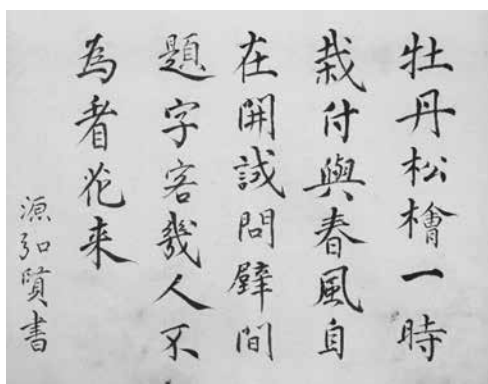 牡丹松檜一時
栽付與春風自
在開誠問壁間
題字客幾人不
為看花来
源弘賢書